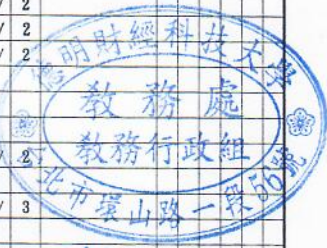 / 2
/ 2
/ 2
德明財經科技大學
教務處
教務行政組
2
北市環山路一段56號
/ 3